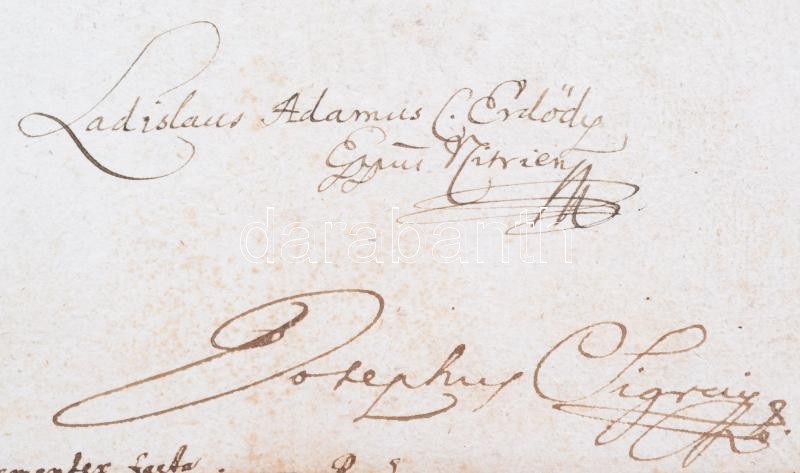 Ladislaus Adamus C. Erdödy
Eppus Nitrien
darabanth
Josephus Sigray